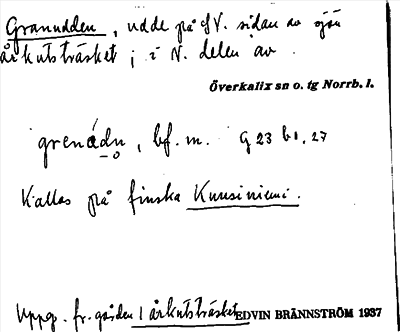 Granudden, udde på SV. sidan av sjön
Årkutsträsket; i N. delen av
Överkalix sn o. tg Norrb. l.
grenádn, bf. m. G 23 b 1, 27
Kallas på finska Kuusiniemi.
Uppg. fr. gården 1 Årkutsträsket EDVIN BRÄNNSTRÖM 1937